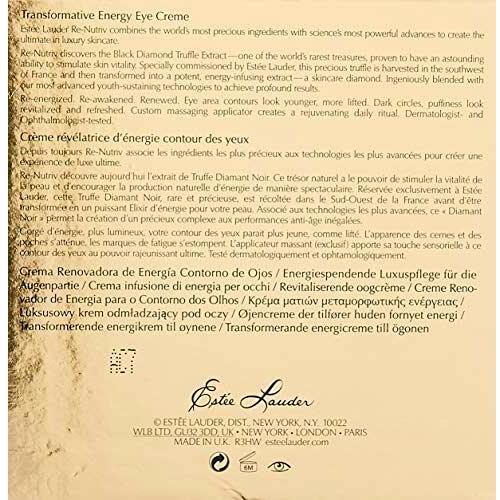 Transformative Energy Eye Creme
Estée Lauder Re-Nutriv combines the world's most precious ingredients with science's most powerful advances to create the
ultimate in luxury skincare.
Re-Nutriv discovers the Black Diamond Truffle Extract—one of the world's rarest treasures, proven to have an astounding
ability to stimulate skin vitality. Specially commissioned by Estée Lauder, this precious truffle is harvested in the southwest
of France and then transformed into a potent, energy-infusing extract—a skincare diamond. Ingeniously blended with
our most advanced youth-sustaining technologies to achieve profound results.
Re-energized. Re-awakened. Renewed. Eye area contours look younger, more lifted. Dark circles, puffiness look
revitalized and refreshed. Custom massaging applicator creates a rejuvenating daily ritual. Dermatologist- and
Ophthalmologist-tested.
Crème révélatrice d'énergie contour des yeux
Depuis toujours Re-Nutriv associe les ingrédients les plus précieux aux technologies les plus avancées pour créer une
expérience de luxe ultime.
Re-Nutriv découvre aujourd'hui l'extrait de Truffe Diamant Noir. Ce trésor naturel a le pouvoir de stimuler la vitalité de
la peau et d'encourager la production naturelle d'énergie de manière spectaculaire. Réservée exclusivement à Estée
Lauder, cette Truffe Diamant Noir, rare et précieuse, est récoltée dans le Sud-Ouest de la France avant d'être
transformée en un puissant Elixir d'énergie pour votre peau. Associé aux technologies les plus avancées, ce « Diamant
Noir » permet la création d'un précieux complexe aux performances anti-âge inégalées.
Gorgé d'énergie, plus lumineux, votre contour des yeux parait plus jeune, comme lifté. L'apparence des cernes et des
poches s'atténue, les marques de fatigue s'estompent. L'applicateur massant (exclusif) apporte sa touche sensorielle à ce
contour des yeux au pouvoir rajeunissant ultime. Testé dermatologiquement et ophtamologiquement.
Crema Renovadora de Energía Contorno de Ojos / Energiespendende Luxuspflege für die
Augenpartie / Crema infusione di energia per occhi / Revitaliserende oogcrème / Creme Reno-
vador de Energia para o Contorno dos Olhos / Κρέμα ματιών μεταμορφωτικής ενέργειας /
Luksusowy krem odmładzający pod oczy / Øjencreme der tilfører huden fornyet energi /
Transformerende energikrem til øynene / Transformerande energicreme till ögonen
AC7
Estée Lauder
© ESTÉE LAUDER, DIST., NEW YORK, N.Y. 10022
WLB LTD, GU32 3DD, UK • NEW YORK • LONDON • PARIS
MADE IN U.K. R3HW esteelauder.com
6M